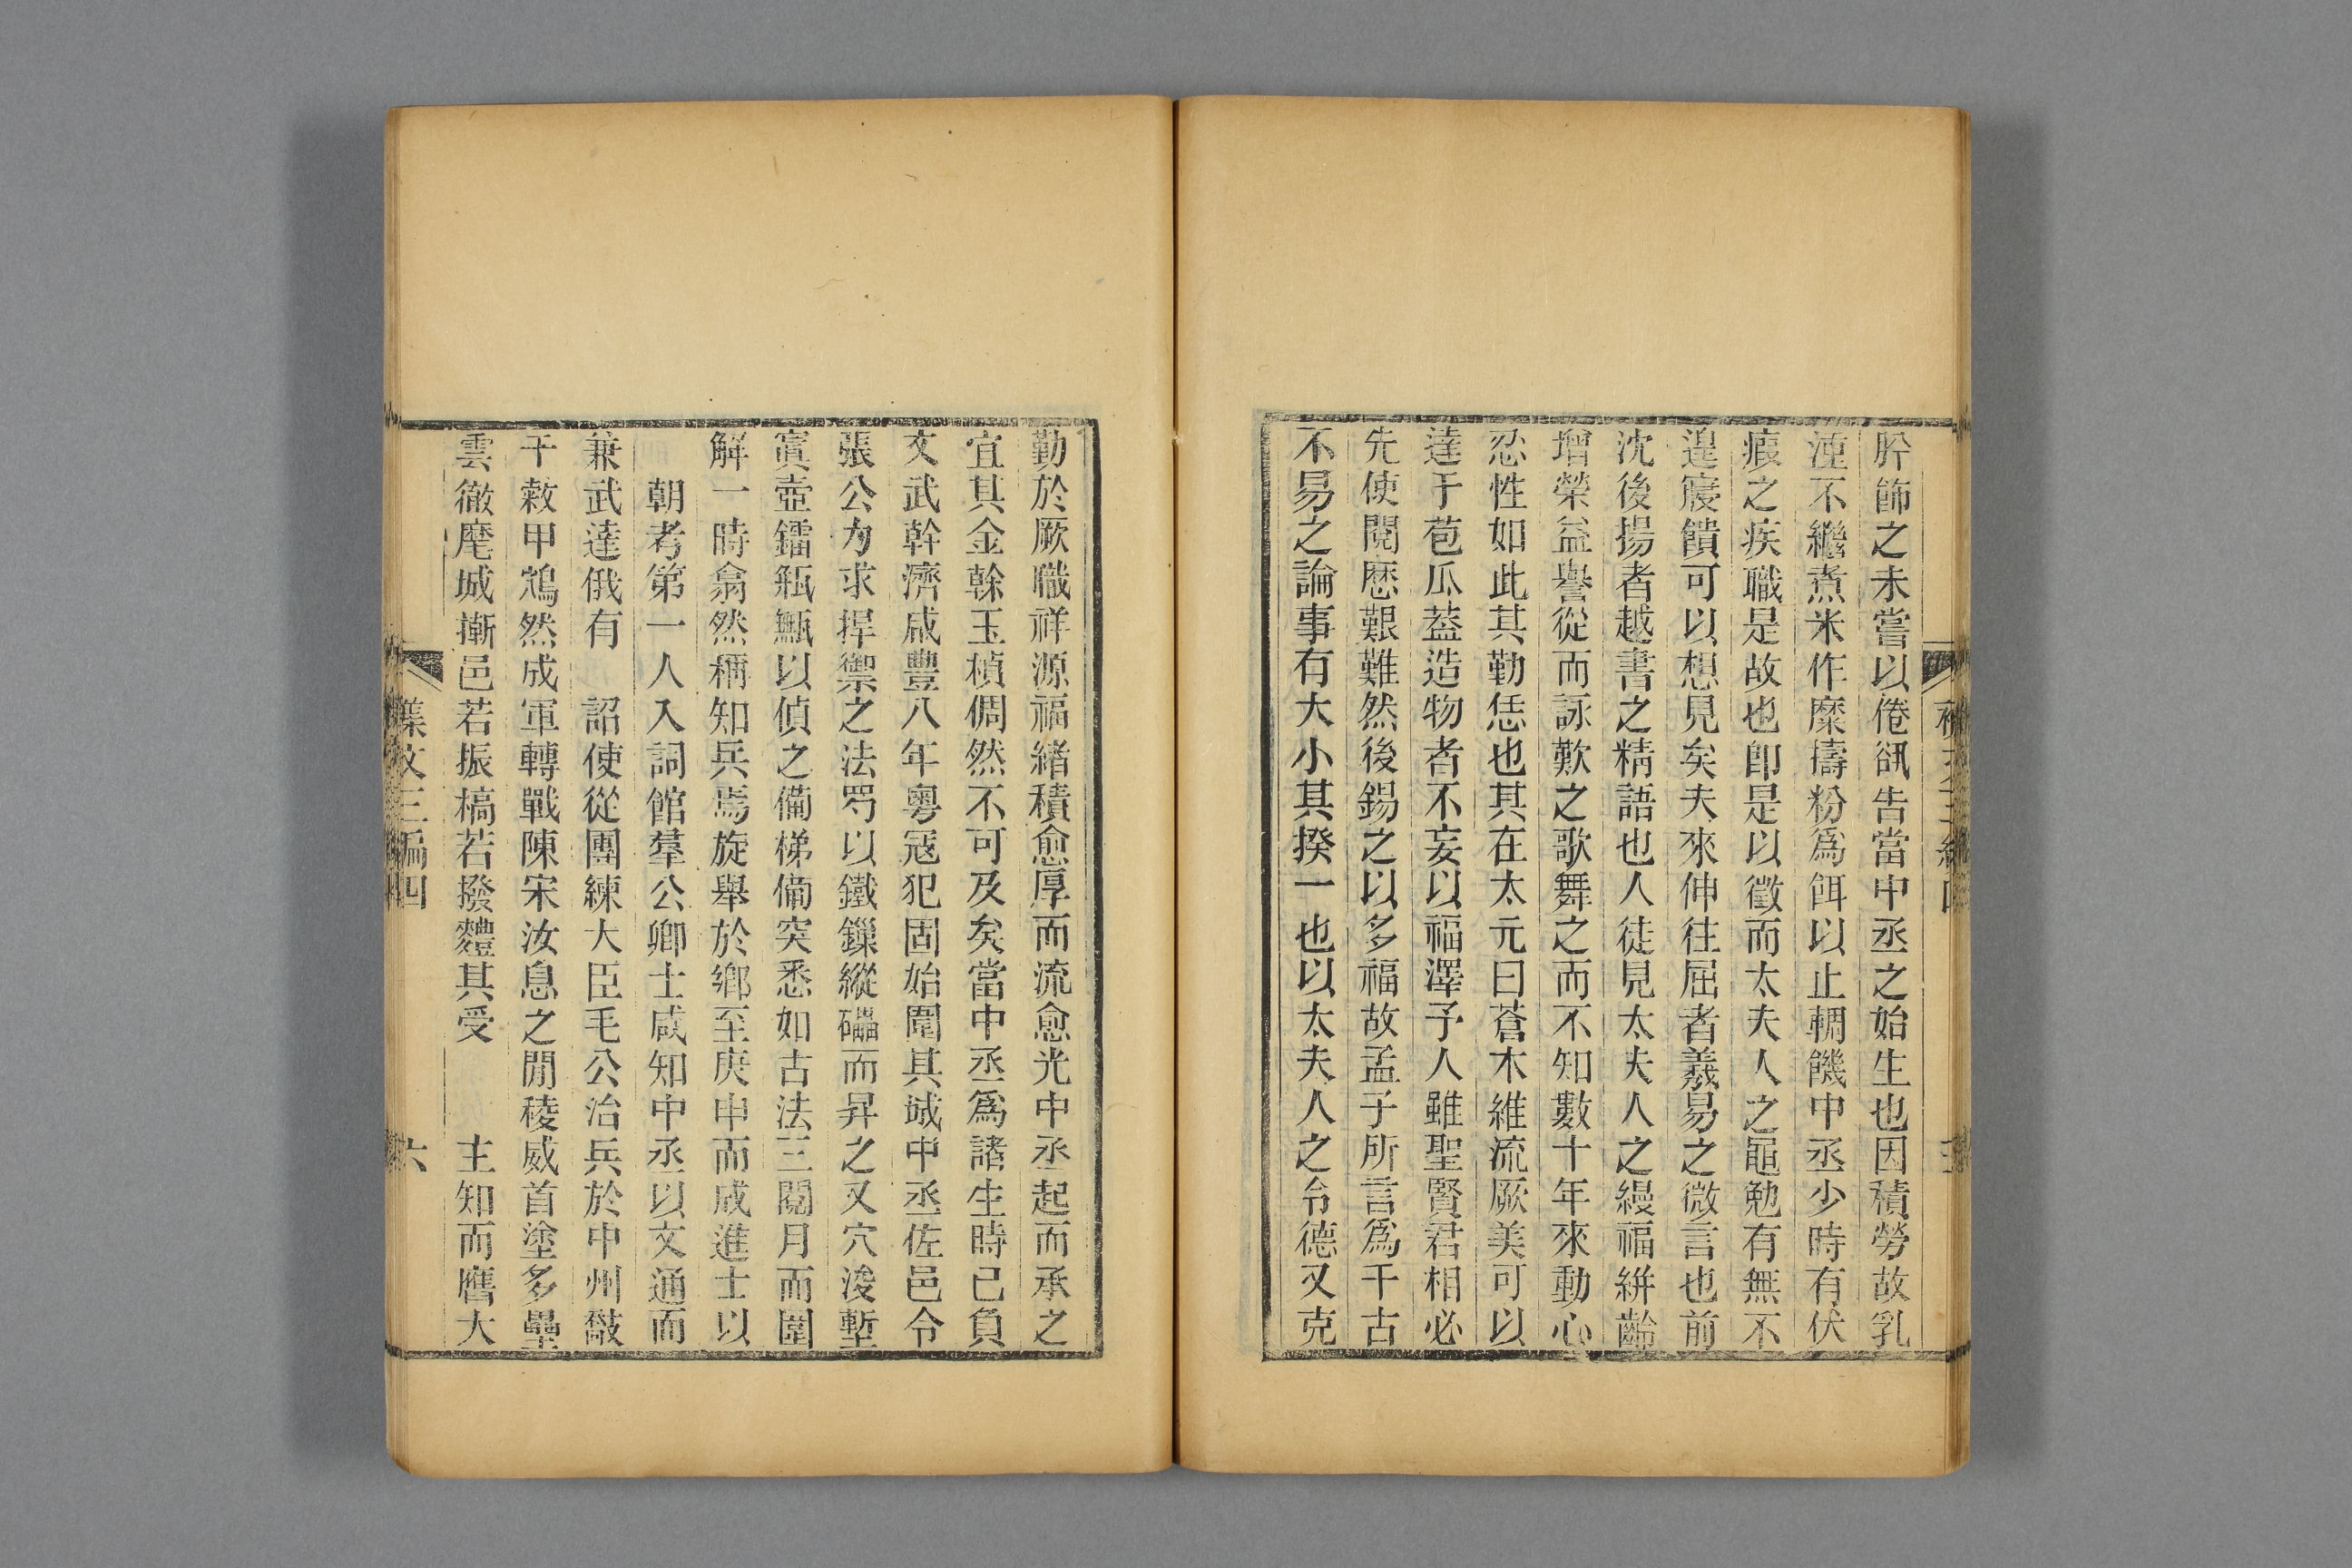 肸飾之未嘗以倦㑃告當中丞之始生也因積勞故乳
湩不繼煮米作糜擣粉爲餌以止輖饑中丞少時有伏
瘕之疾職是故也卽是以徵而太夫人之黽勉有無不
遑寢饋可以想見矣夫來伸往屈者羲易之微言也前
沈後揚者越書之精語也人徒見太夫人之縵福絣齡
增榮益譽從而詠歎之歌舞之而不知數十年來動心
忍性如此其勤恁也其在太元曰蒼木維流厥美可以
達于苞瓜葢造物者不妄以福澤予人雖聖賢君相必
先使閱厯艱難然後錫之以多福故孟子所言爲千古
不易之論事有大小其揆一也以太夫人之令德又克
勤於厥職祥源福緖積愈厚而流愈光中丞起而承之
宜其金榦玉楨倜然不可及矣當中丞爲諸生時已負
文武幹濟咸豐八年粵寇犯固始圍其城中丞佐邑令
張公力求捍禦之法罗以鐵鏁縱礧而昇之又穴浚塹
寘壺鐳瓶甒以偵之備梯備突悉如古法三閱月而圍
解一時翕然稱知兵焉旋舉於鄕至庚申而成進士以
朝考第一人入詞館羣公卿士咸知中丞以文通而
兼武達俄有 詔使從團練大臣毛公治兵於中州敽
干敹甲鴆然成軍轉戰陳宋汝息之閒稜威首塗多壘
雲徹麾城摲邑若振槁若撥麷其受 主知而膺大
集文三編四 六